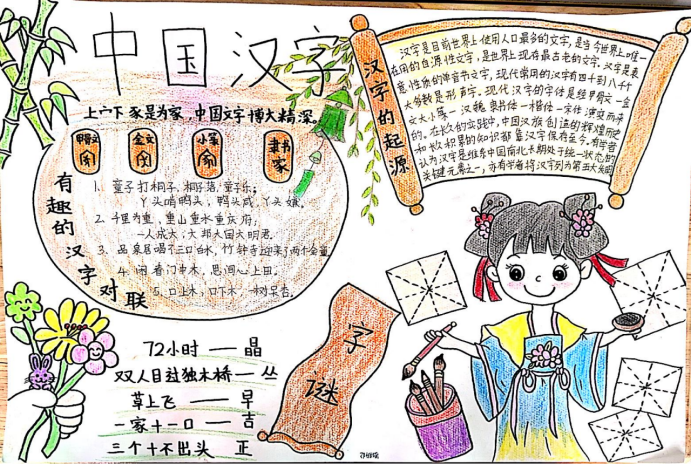 中国汉字
上宀下豕是为家，中国文字博大精深。
甲骨文
金文
小篆
隶书
家
有趣的汉字对联
1、童子打桐子，桐子落，童子乐；
丫头啃鸭头，鸭头咸，丫头嫌。
2、千里为重，重山重水重庆府；
一人成大，大邦大国大明君。
3、品泉居喝三口白水，竹 寺 两个 
4、闲看门中木，思间心上田。
5、口上木，口下木，
汉字的起源
汉字是目前世界上使用人口最多的文字，是当今世界上唯一
在用的自源性文字，是世界上现存最古老的文字。汉字是表
意性质的 音节文字，现代常用的汉字有四千到八千个
大多数是形声字。现代汉字的字体是经甲骨文－金
文－ 篆－汉 － 书－楷体－宋体演变而来
的。在长久的实践中，中国汉族创造的辉煌历史
和长久积累的知识都靠汉字保存至今。有学者
认为汉字是维系中国南北长期处于统一状态的
关键元素之一，亦有学者将汉字列为第五大发明
72小时 —— 晶
双人目过独木桥 — 丛
草上飞 —— 早
一家十一口 —— 吉
三个十不出头 正
字谜